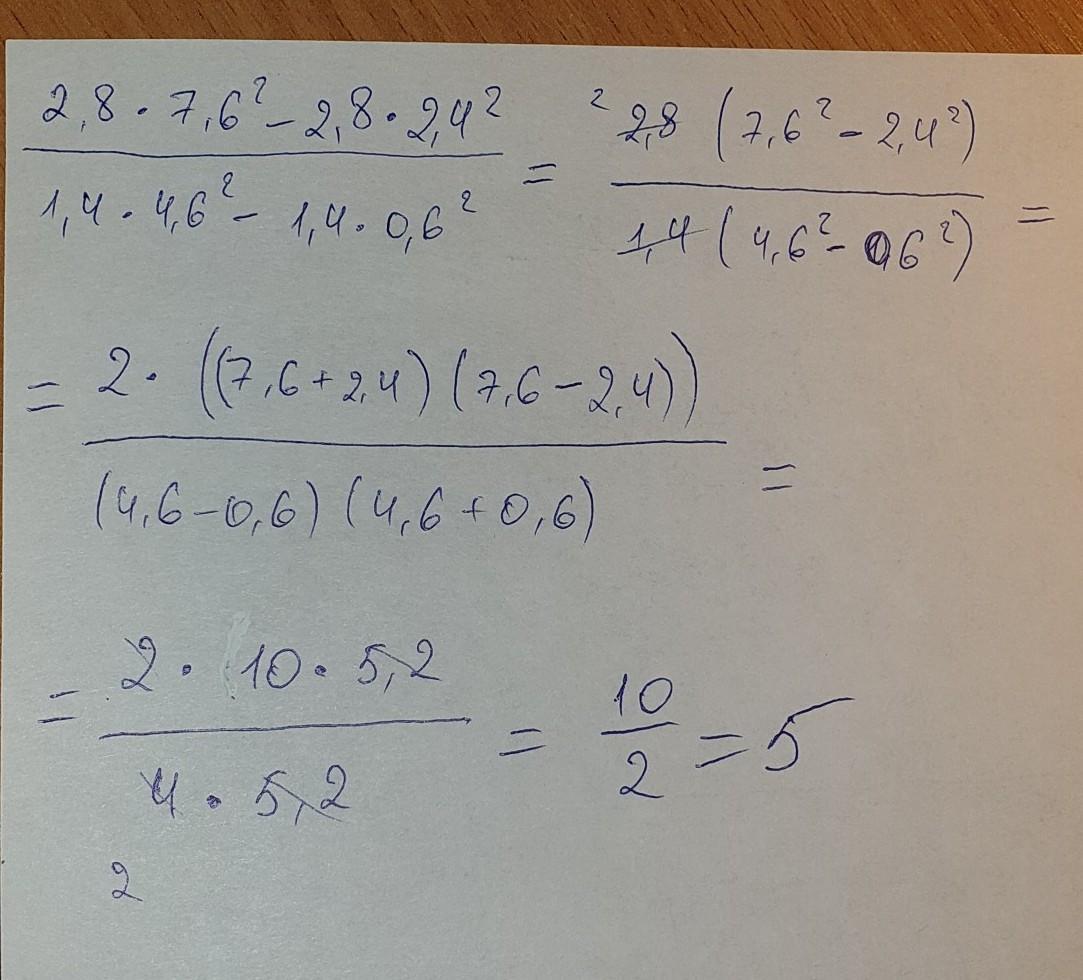 2,8 · 7,6² - 2,8 · 2,4² / 1,4 · 4,6² - 1,4 · 0,6² = ² 2,8 (7,6² - 2,4²) / 1,4 (4,6² - 0,6²) =
= 2 · ((7,6 + 2,4) (7,6 - 2,4)) / (4,6 - 0,6) (4,6 + 0,6) =
= 2 · 10 · 5,2 / 4 · 5,2 = 10 / 2 = 5
2